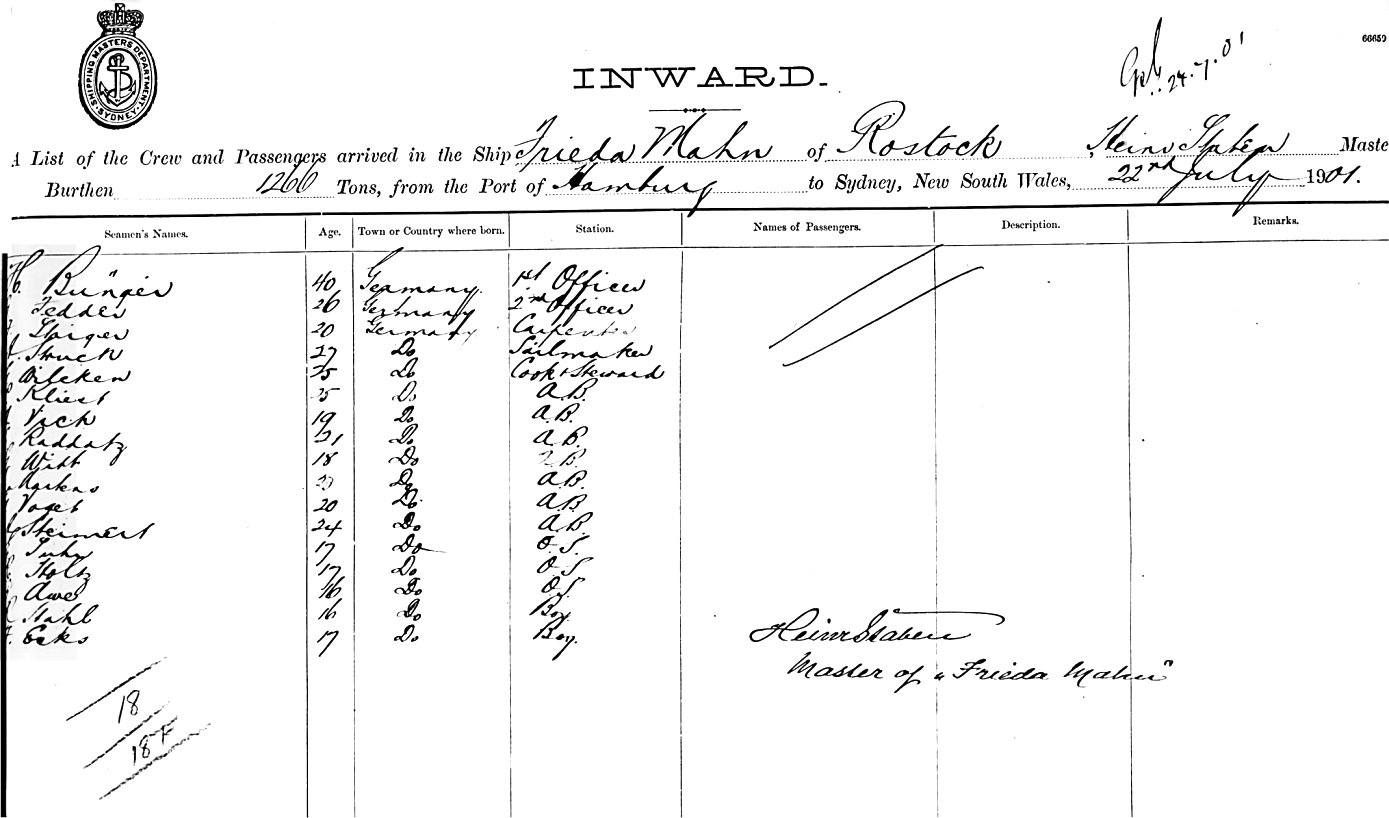 SHIPPING MASTERS DEPARTMENT. SYDNEY.
66650
24.7.01
INWARD.
A List of the Crew and Passengers arrived in the Ship Frieda Mahn of Rostock, Heinr Staben Maste
Burthen 1266 Tons, from the Port of Hamburg to Sydney, New South Wales, 22nd July 1901.
Seamen's Names. Age. Town or Country where born. Station. Names of Passengers. Description. Remarks.
H. Bünger 40 Germany 1st Officer
Fedder 26 Germany 2nd Officer
20 Germany Carpenter
Struck 27 Do Sailmaker
Wilcken 25 Do Cook & Steward
25 Do A.B.
Vick 19 Do A.B.
Raddatz 21 Do A.B.
Witt 18 Do A.B.
Do A.B.
20 Do A.B.
24 Do A.B.
17 Do O.S.
Stoltz 17 Do O.S
Awe 16 Do O.S.
Stahl 16 Do Boy
F. 17 Do Boy.
Heinr Staben
Master of "Frieda Mahn"
18
18 F